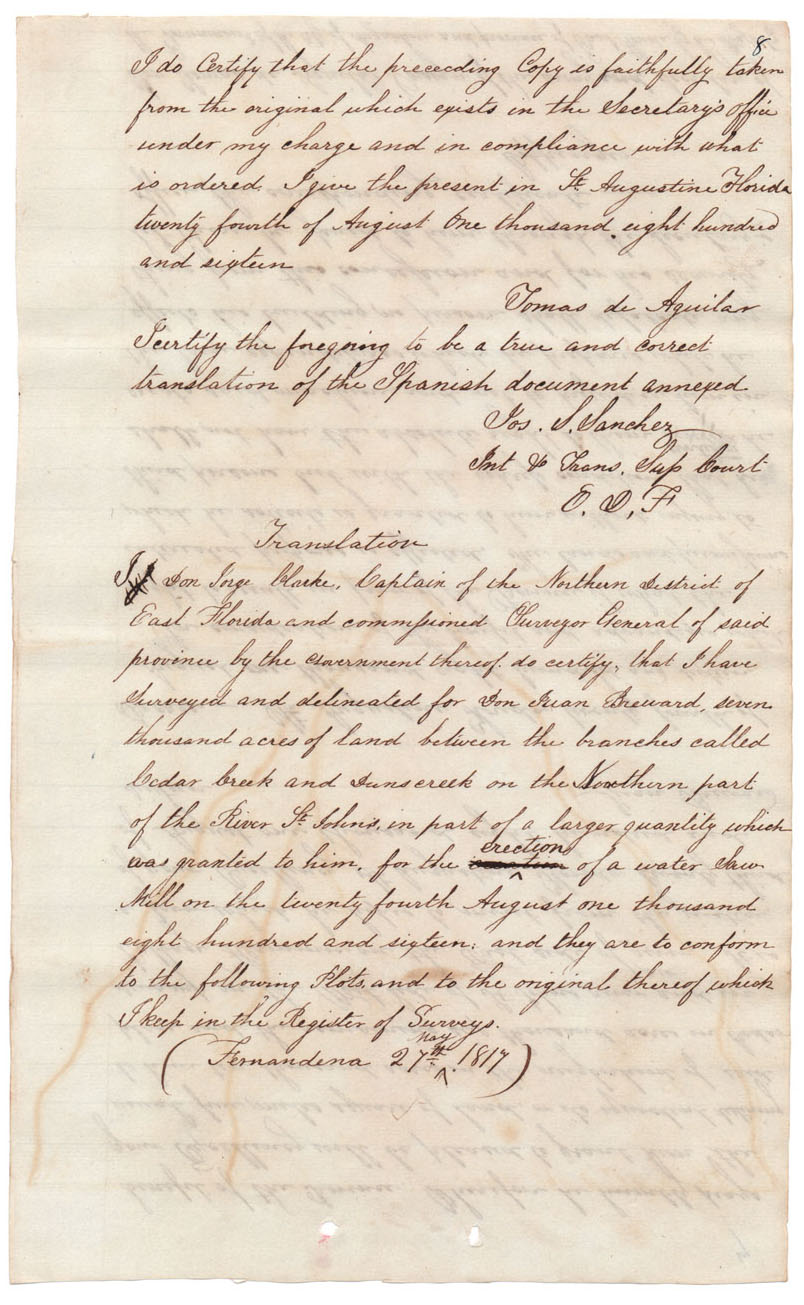 8
I do Certify that the preceeding Copy is faithfully taken
from the original which exists in the Secretary's office
under my charge and in compliance with what
is ordered. I give the present in St. Augustine Florida
twenty fourth of August One thousand eight hundred
and sixteen
Tomas de Aguilar
I certify the foregoing to be a true and correct
translation of the Spanish document annexed
Jos. S. Sanchez
Int & Trans. Sup Court
E. D. F
Translation
I Don Jorge Clarke, Captain of the Northern District of
East Florida and commssioned Surveyor General of said
province by the Government thereof. do certify, that I have
Surveyed and delineated for Don Juan Breward, seven
thousand acres of land between the branches called
Cedar Creek and Dunscreek on the Northern part
of the River St. Johns, in part of a larger quantity which
was granted to him, for the erection of a water Saw
Mill on the twenty fourth August one thousand
eight hundred and sixteen; and they are to conform
to the following Plots, and to the original thereof which
I keep in the Register of Surveys.
(Fernandena 27th May. 1817)